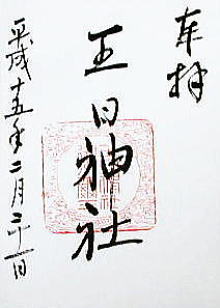 奉拝
五日神社
平成十五年二月二十一日